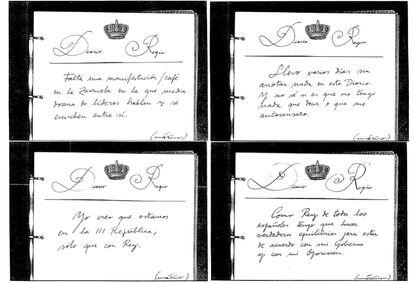 Diario Regio
Falta una manifestación/café
en la Zarzuela en la que media
docena de líderes hablen y se
escuchen entre sí.
Diario Regio
Llevo varios días sin
anotar nada en este Diario.
Y no sé si es que no tengo
nada que decir o que me
autocensuro.
Diario Regio
Yo creo que estamos
en la III República,
solo que con Rey.
Diario Regio
Como Rey de todos los
españoles tengo que hacer
verdaderos equilibrios para estar
de acuerdo con mi Gobierno
y con mi Oposición.